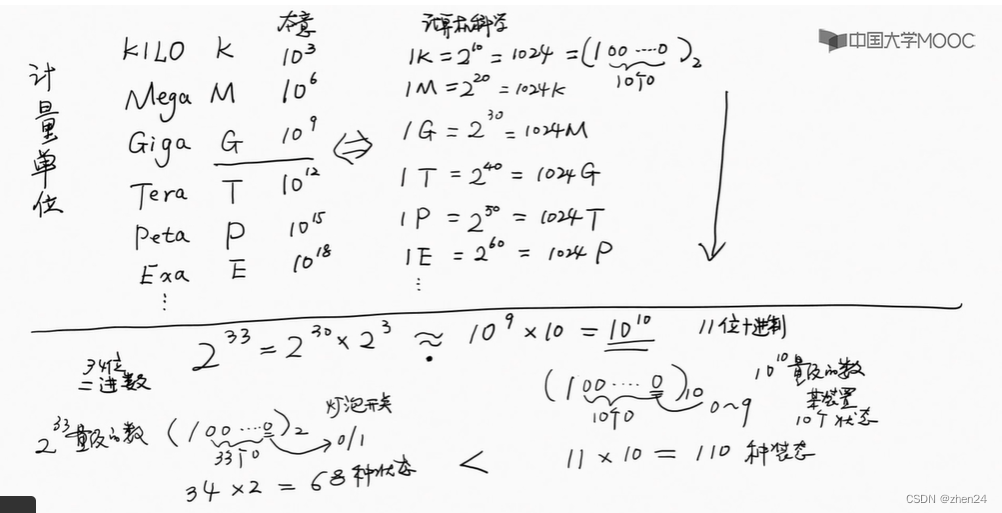 中国大学MOOC
计量单位
本意 计算机科学
KILO K 10³ 1K=2¹⁰=1024=(100…0)₂
10个0
Mega M 10⁶ 1M=2²⁰=1024K
Giga G 10⁹ ⇔ 1G=2³⁰=1024M
Tera T 10¹² 1T=2⁴⁰=1024G
Peta P 10¹⁵ 1P=2⁵⁰=1024T
Exa E 10¹⁸ 1E=2⁶⁰=1024P
⋮ ⋮
2³³=2³⁰×2³≈10⁹×10=10¹⁰ 11位十进制
34位
二进数
(100…0)₁₀ 10¹⁰量级的数
10个0 0~9 某装置
10个状态
灯泡开关
2³³量级的数 (100…0)₂ 0/1
33个0
34×2=68种状态 < 11×10=110种状态
CSDN @zhen24